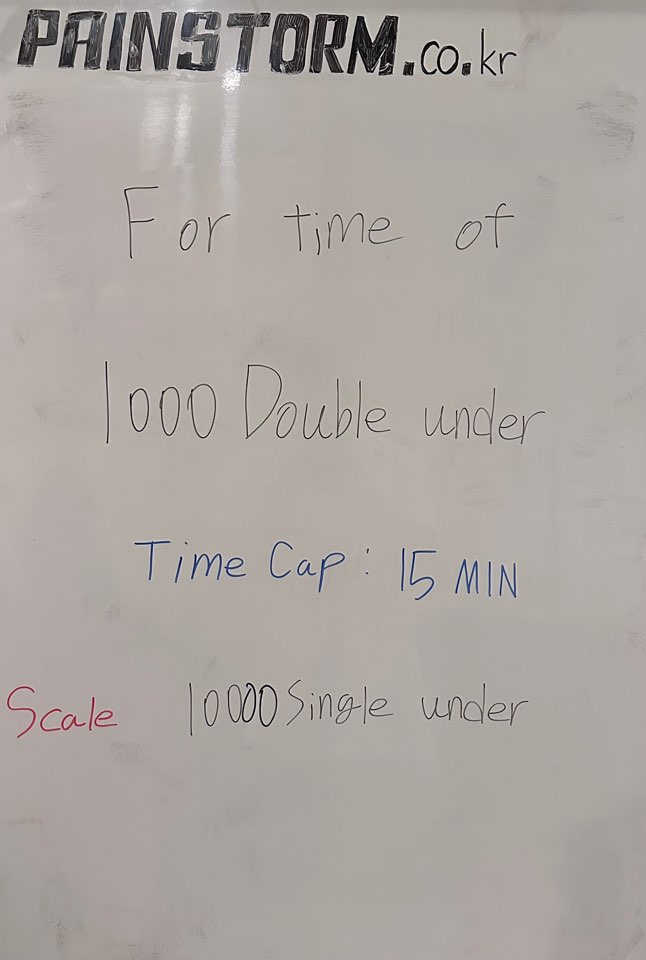 PAINSTORM.co.kr
For time of
1000 Double under
Time Cap : 15 MIN
Scale 10000 Single under